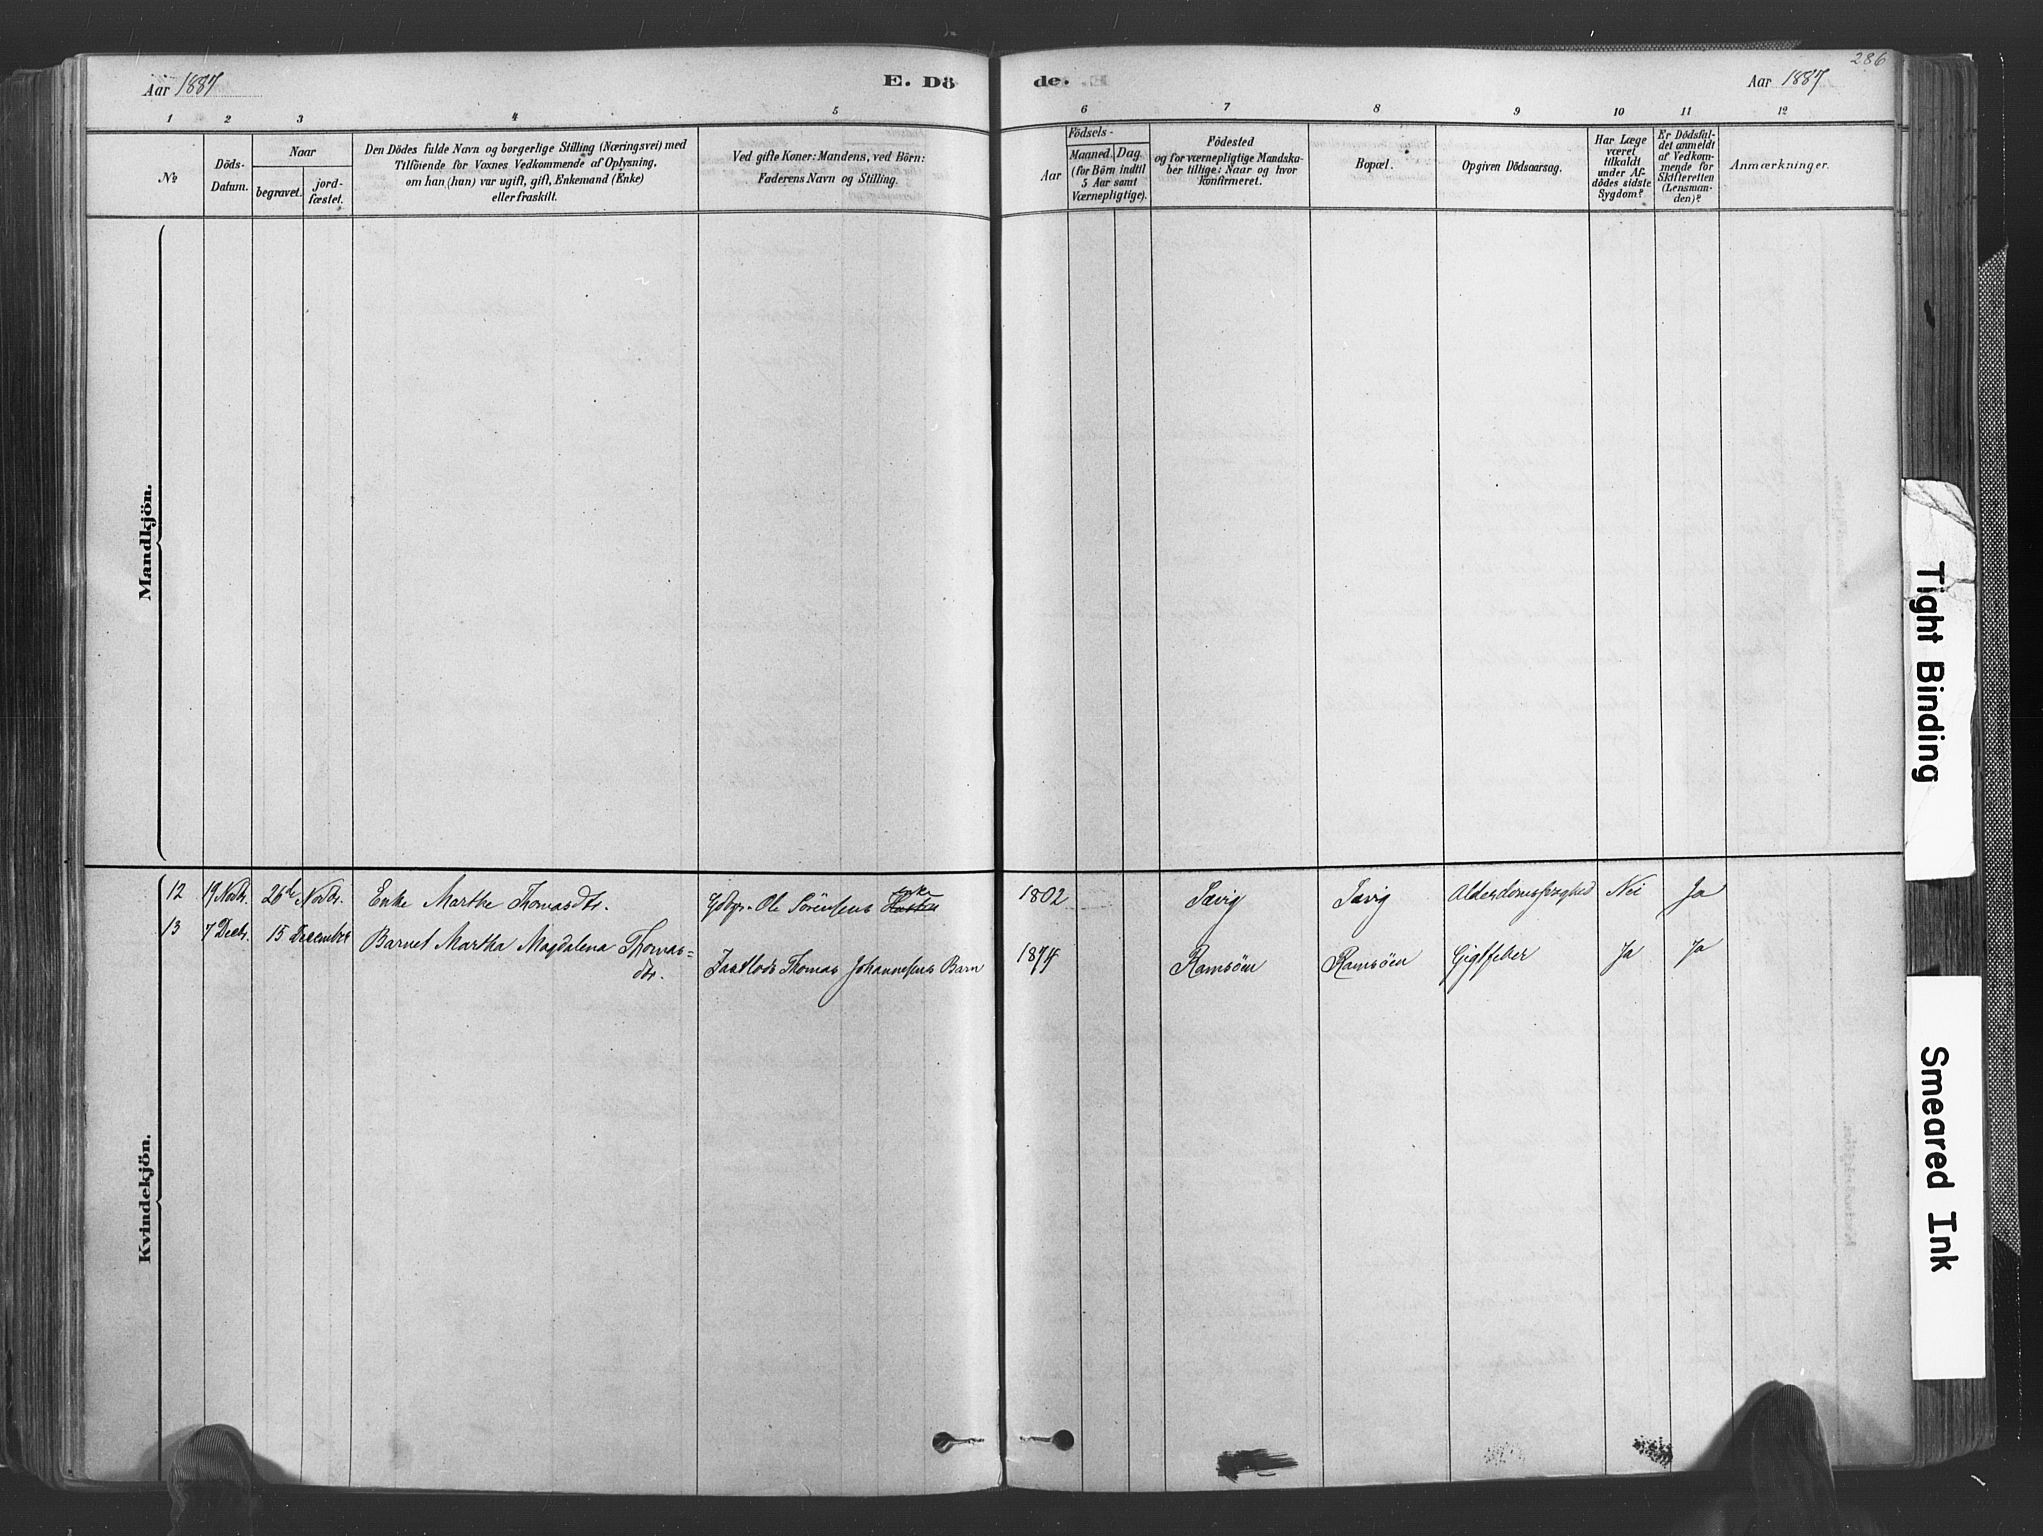 286
Aar 1887
E. Dö
de.
Aar 1887
1 2 3 4 5 6 7 8 9 10 11 12
No
Döds-
Datum.
Naar
begravet.
jord-
fæstet.
Den Dödes fulde Navn og borgerlige Stilling (Næringsvei) med
Tilföiende for Voxnes Vedkommende af Oplysning,
om han (hun) var ugift, gift, Enkemand (Enke)
eller fraskilt.
Ved gifte Koner: Mandens, ved Börn:
Faderens Navn og Stilling.
Födsels-
Aar
Maaned. Dag.
(for Börn indtil
5 Aar samt
Værnepligtige).
Födested
og for værnepligtige Mandska-
ber tillige: Naar og hvor
konfirmeret.
Bopæl.
Opgiven Dödsaarsag.
Har Læge
været
tilkaldt
under Af-
dödes sidste
Sygdom?
Er Dödsfal-
det anmeldt
af Vedkom-
mende for
Skifteretten
(Lensman-
den)?
Anmærkninger.
Mandkjön.
Kvindekjön.
12 19 Novbr. 26de Novbr. Enke Marthe Thomasdtr. Ole Sörensens Enke 1802 Sævig Sævig Alderdomssvaghed Nei Ja
13 7 Decbr. 15 December Barnet Martha Magdalena Thomas=
dtr. Thomas Johannesens Barn 1874 Ramsöen Ramsöen Gigtfeber Ja Ja
Tight Binding
Smeared Ink